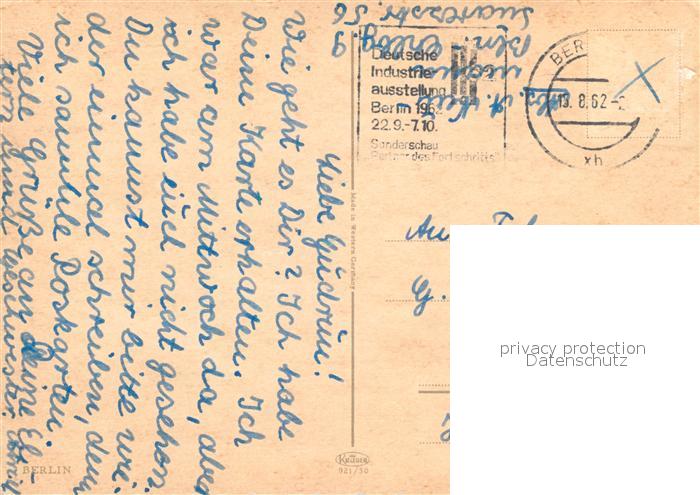 Liebe Gudrun!
Wie geht es Dir? Ich habe
Deine Karte erhalten. Ich
war am Mittwoch da, aber
ich habe euch nicht gesehen.
Du kannst mir bitte wi-
der einmal schreiben, denn
ich sammle Postkarten.
Viele Grüße an Deine El-
tern und Geschwester.
Deutsche
Industrie
ausstellung
Berlin 1962
22.9.-7.10.
Sonderschau
"Partner des Fortschritts"
BER
13. 8. 62 -2
xh
Made in Western Germany
privacy protection
Datenschutz
BERLIN
Krüger
921/50